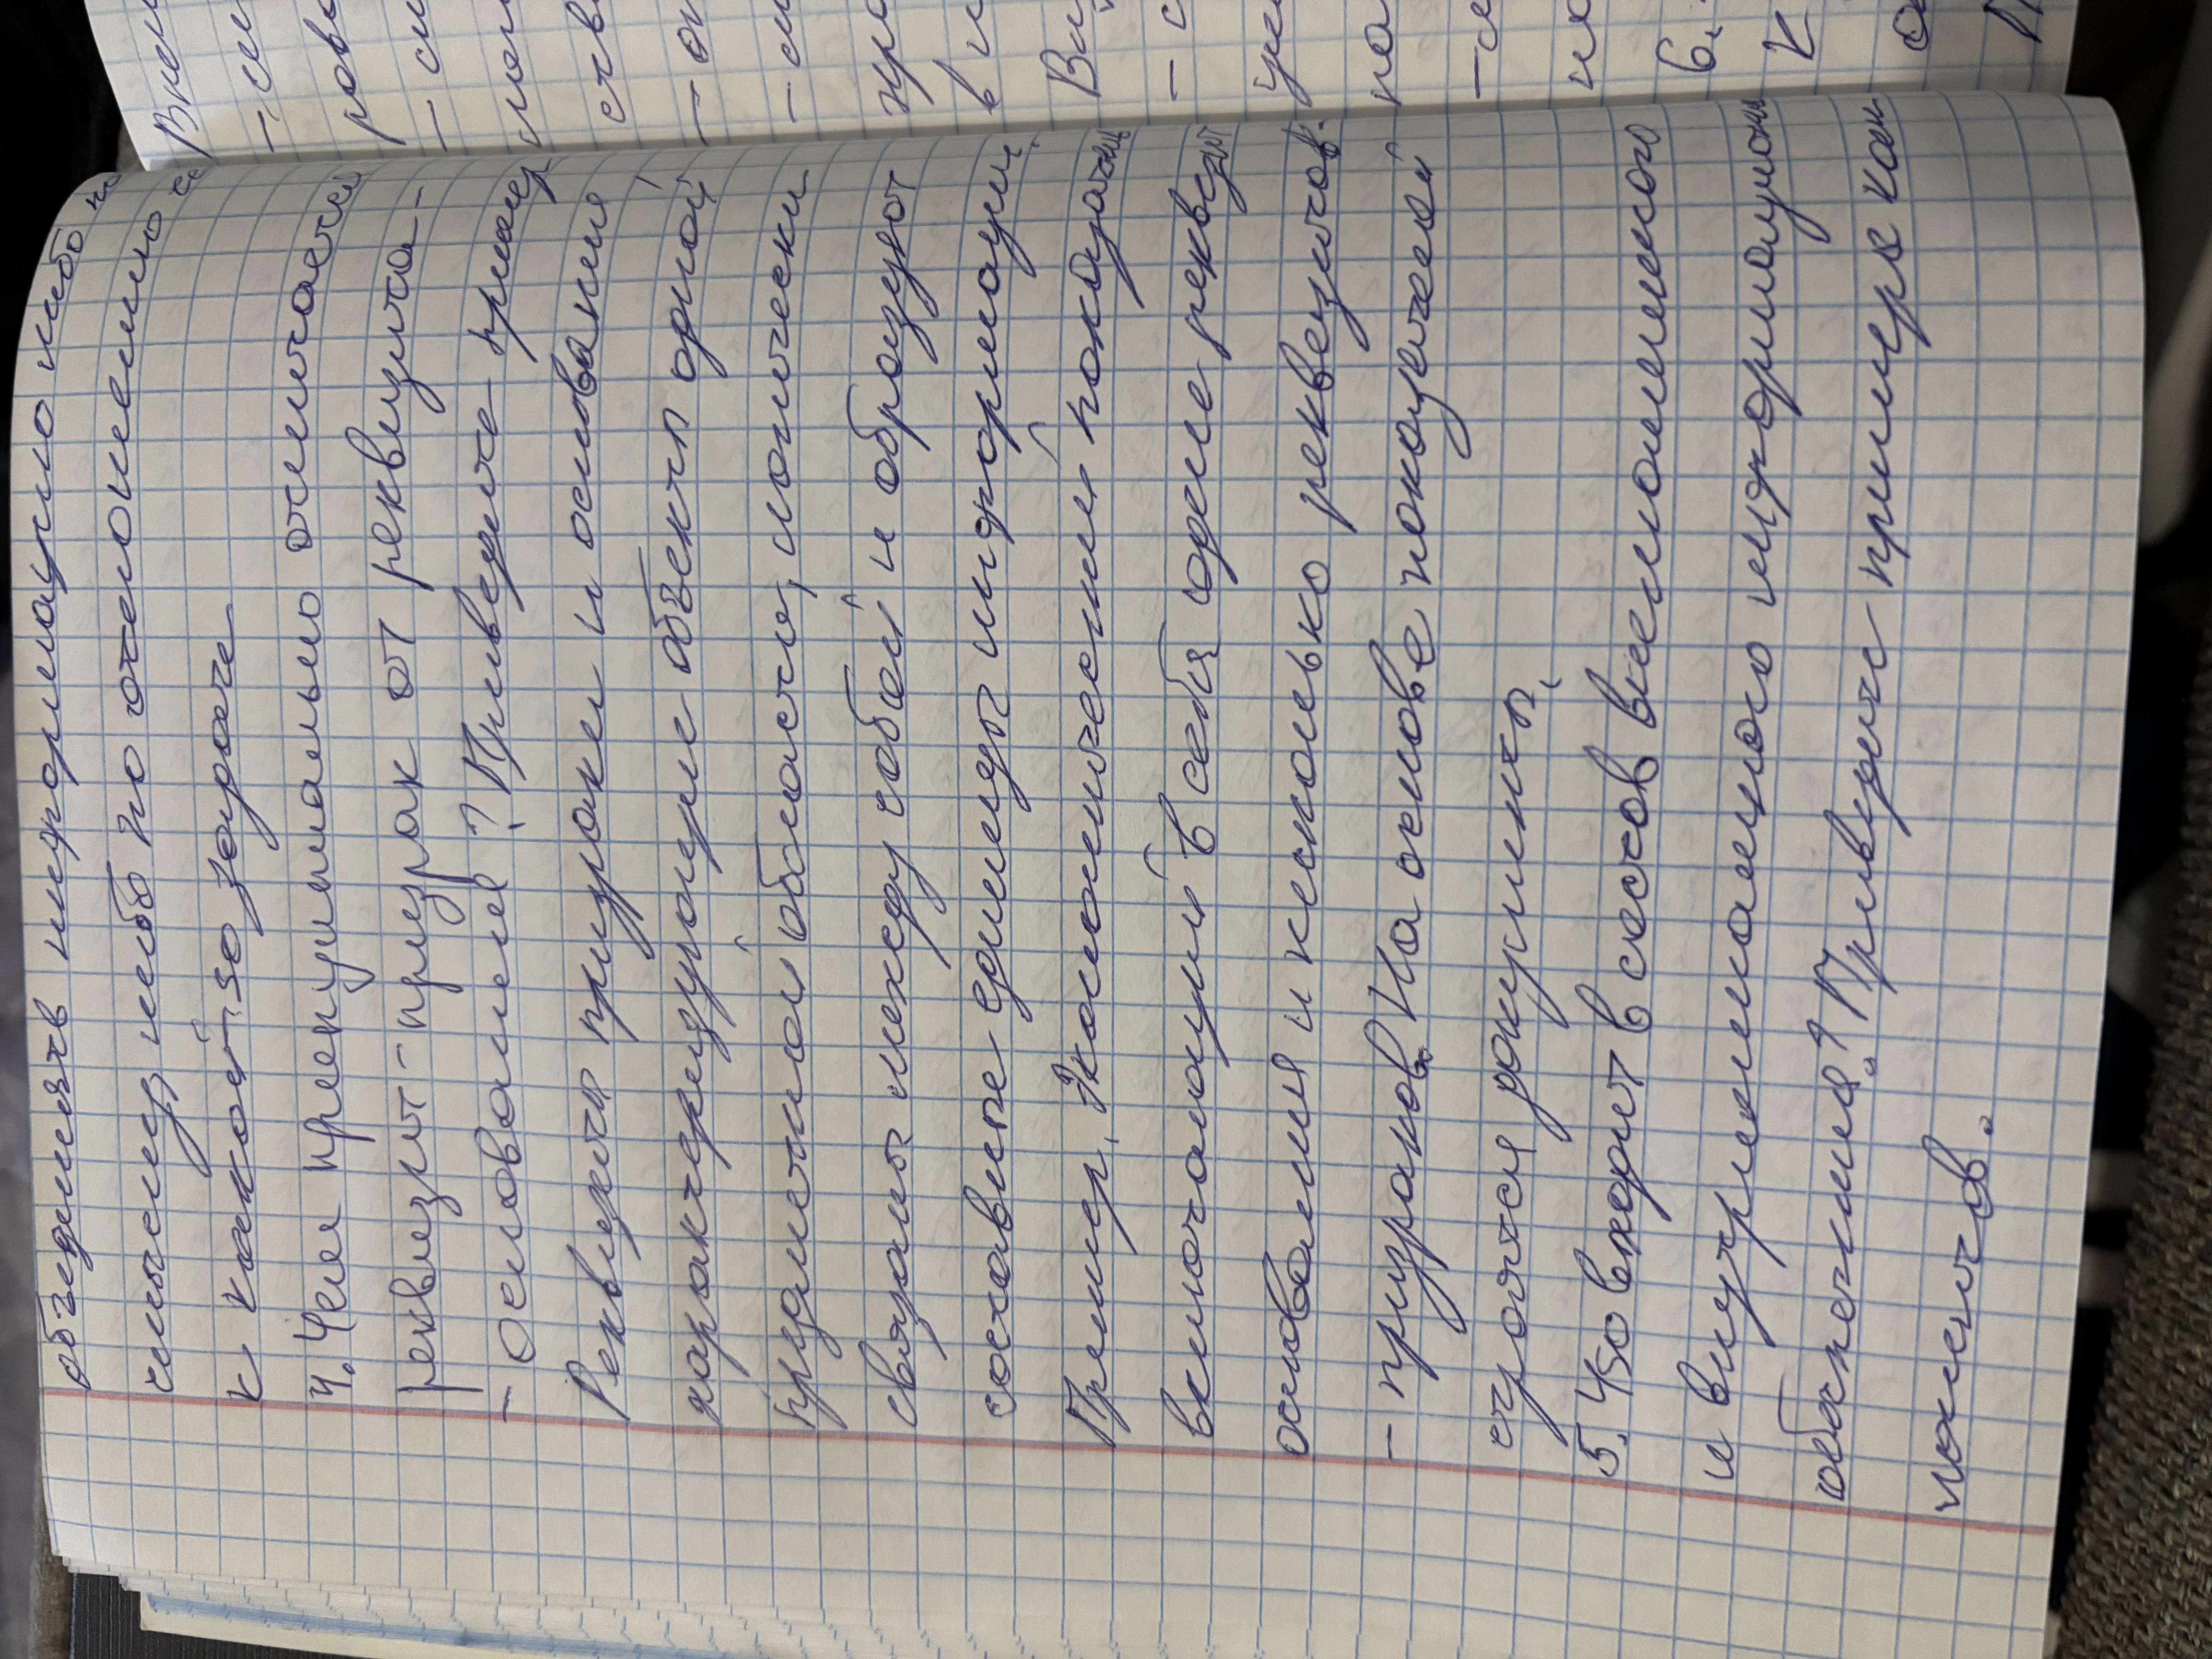 объединять информацию либо по
смыслу, либо по отношению
к какой-то задаче
4. Чем принципиально отличается
реквизит-признак от реквизита-
-основания? Приведите пример
Реквизиты признаки и основания
характеризующие объекты одной
предметной области, логически
связаны между собой и образуют
составные единицы информации.
Пример. Экономический показатель
включающий в себя один реквезит
основания и несколько реквезитов-
-признаков. На основе показателей
строятся документы,
5. Что входит в состав внемашинного
и внутримашинного информационн
обеспечения? Приведите пример ком
понентов.